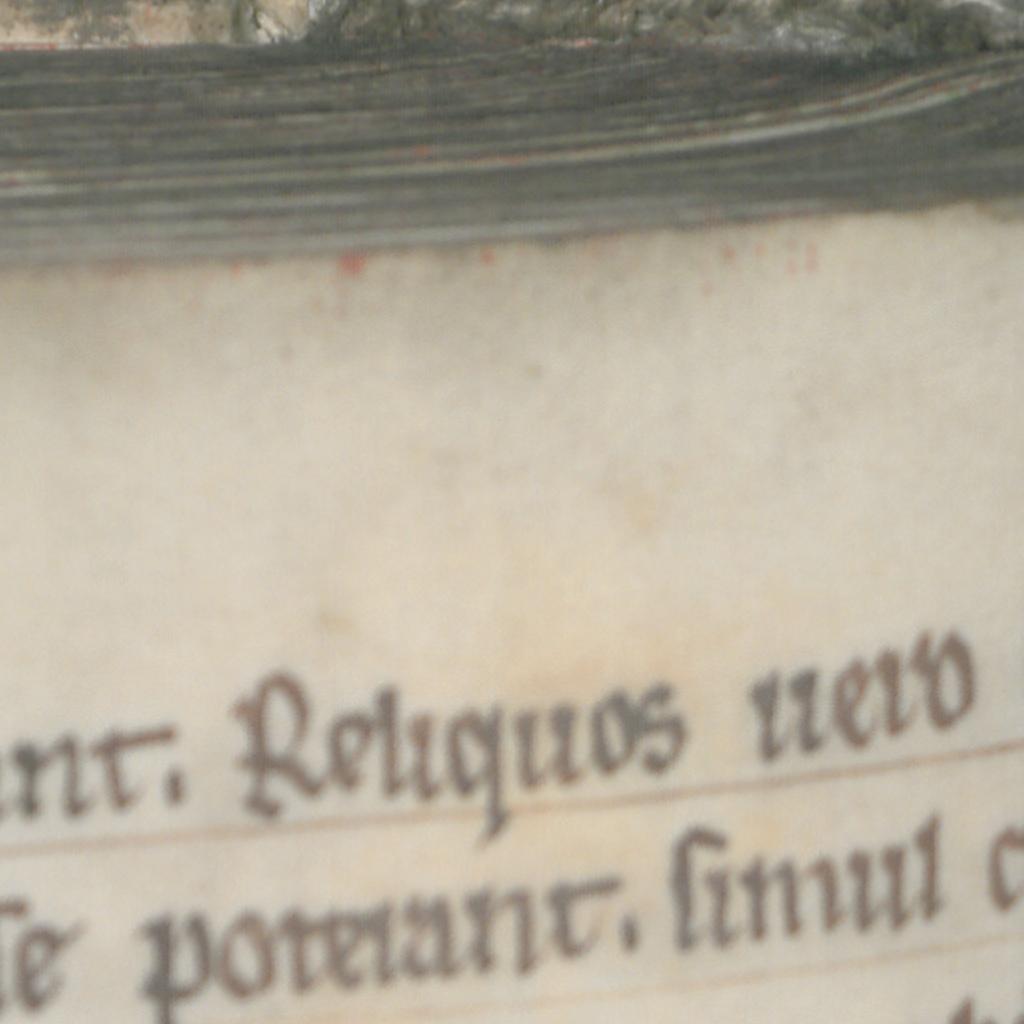 Reliquos uero
poterant. simul